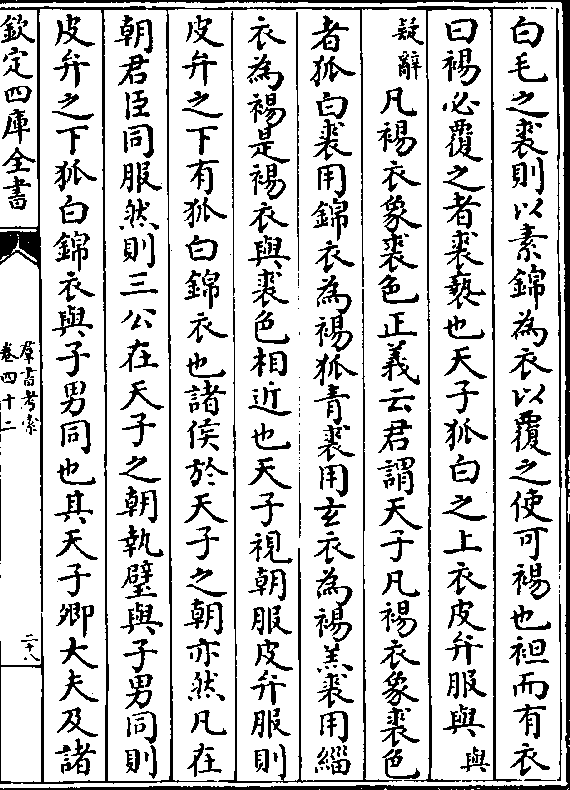 白毛之裘則以素錦為衣以覆之使可裼也袒而有衣
曰裼必覆之者裘䙝也天子狐白之上衣皮弁服與與
疑辭凡裼衣象裘色正義云君謂天子凡裼衣象裘色
者狐白裘用錦衣為裼狐青裘用玄衣為裼羔裘用緇
衣為裼是裼衣與裘色相近也天子視朝服皮弁服則
皮弁之下有狐白錦衣也諸侯於天子之朝亦然凡在
朝君臣同服然則三公在天子之朝執璧與子男同則
皮弁之下狐白錦衣與子男同也其天子卿大夫及諸
欽定四庫全書
羣書考索
卷四十二
二十八